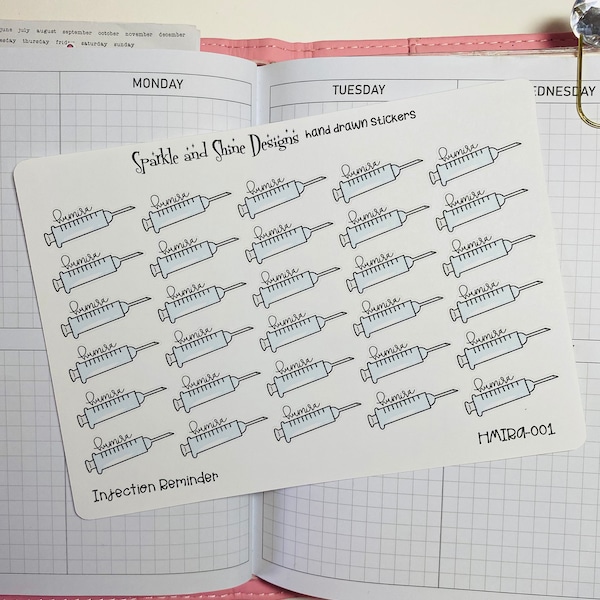 june july august september october november december
tuesday thursday friday saturday sunday
MONDAY
TUESDAY
WEDNESDAY
Sparkle and Shine Designs hand drawn stickers
humira humira humira humira humira
humira humira humira humira humira
humira humira humira humira humira
humira humira humira humira humira
humira humira humira humira humira
humira humira humira humira humira
Injection Reminder
HMIRA-001